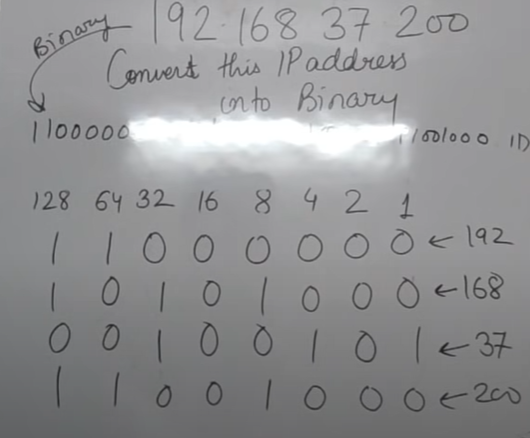 192.168 37 200
Binary
Convert this IP address
into Binary
1100000 1001000 ID
128 64 32 16 8 4 2 1
1 1 0 0 0 0 0 0 ← 192
1 0 1 0 1 0 0 0 ← 168
0 0 1 0 0 1 0 1 ← 37
1 1 0 0 1 0 0 0 ← 200